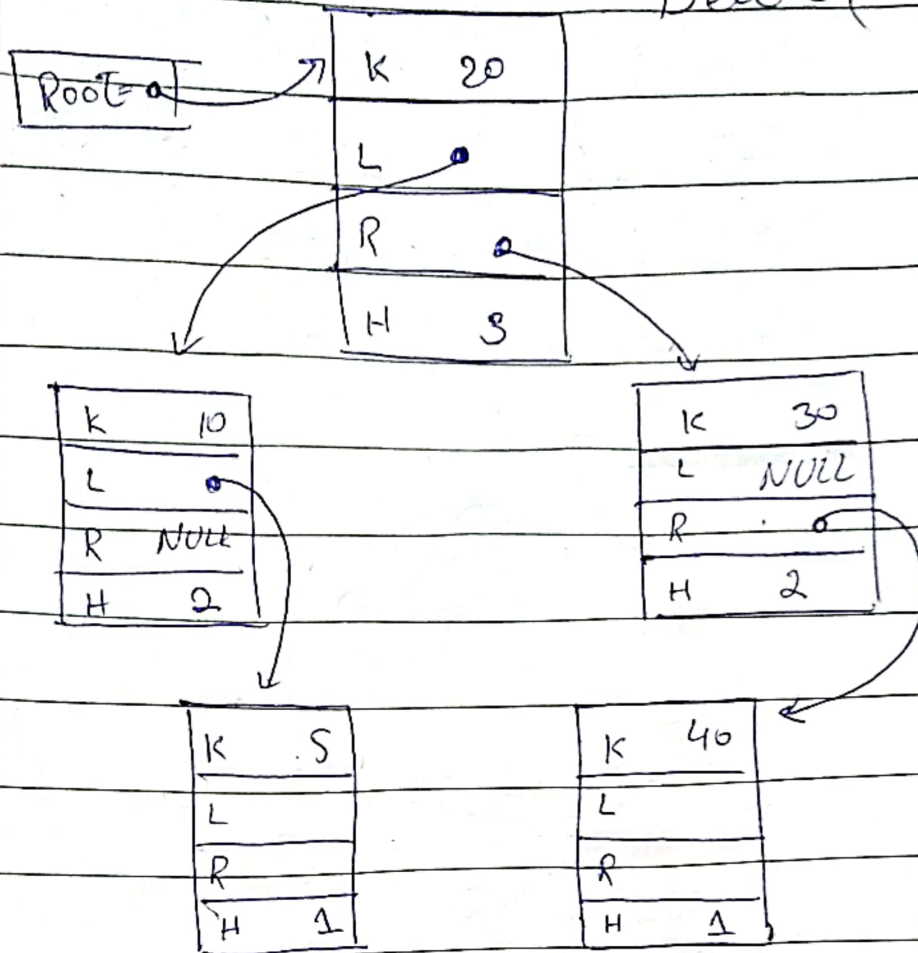 Root
K 20
L
R
H 3
K 10
L
R NULL
H 2
K 30
L NULL
R
H 2
K 5
L
R
H 1
K 40
L
R
H 1